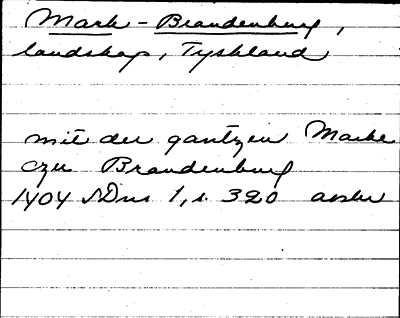 Mark-Brandenburg,
landskap, Tyskland
mit der gantzen Marke
czu Brandenburg
1404 SDns 1, s. 320 avskr